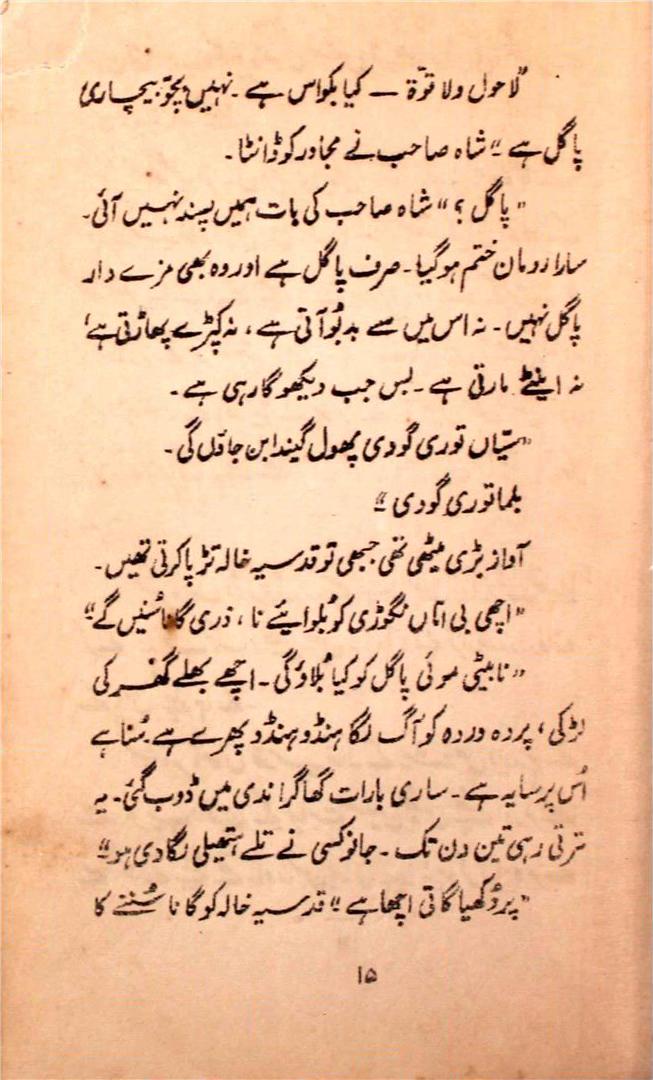 "لاحول ولا قوّۃ — کیا بکواس ہے ۔ نہیں بچّو بیچاری
پاگل ہے" شاہ صاحب نے مجاور کو ڈانٹا۔
"پاگل؟" شاہ صاحب کی بات ہمیں پسند نہیں آئی۔
سارا رومان ختم ہوگیا۔ صرف پاگل ہے اور وہ بھی مزے دار
پاگل نہیں۔ نہ اس میں سے بدبُو آتی ہے، نہ کپڑے پھاڑتی ہے،
نہ اینٹے مارتی ہے۔ بس جب دیکھو گا رہی ہے۔
"سیّاں توری گودی پھول گیندا بن جاؤں گی۔
بلما توری گودی"
آواز بڑی میٹھی تھی جبھی تو قدسیہ خالہ تڑپا کرتی تھیں۔
"اچھی بی امّاں نگوڑی کو بُلوایئے نا، ذری گانا سُنیں گے"
"نا بیٹی موئی پاگل کو کیا بُلاؤگی۔ اچھے بھلے گھر کی
لڑکی، پردہ وردہ کو آگ لگا ہنڈو ہنڈو پھرے ہے۔ سُنا ہے
اُس پر سایہ ہے۔ ساری بارات گھاگرا ندی میں ڈوب گئی۔ یہ
ترتی رہی تین دن تک۔ جانو کسی نے تلے ہتھیلی لگا دی ہو"
"پر دُکھیا گاتی اچھا ہے" قدسیہ خالہ کو گانا سُننے کا
۱۵